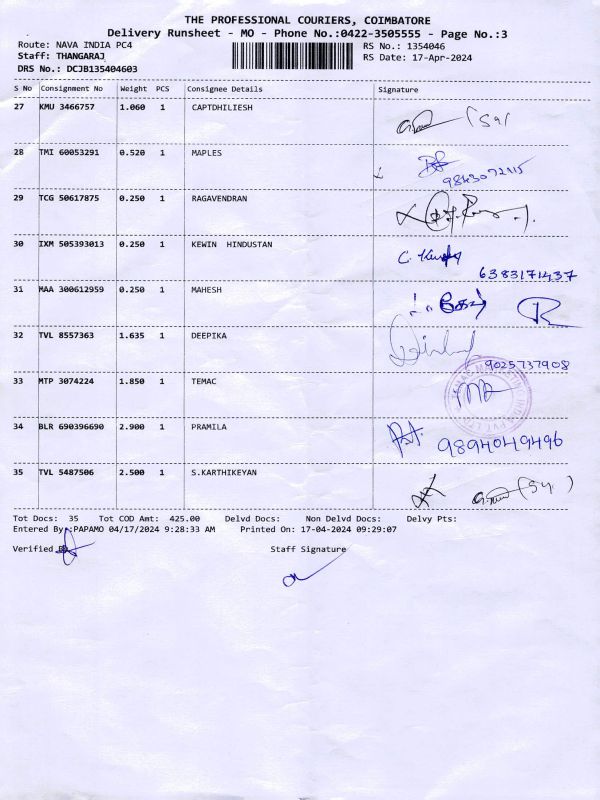 THE PROFESSIONAL COURIERS, COIMBATORE
Delivery Runsheet - MO - Phone No.:0422-3505555 - Page No.:3
Route: NAVA INDIA PC4 RS No.: 1354046
Staff: THANGARAJ RS Date: 17-Apr-2024
DRS No.: DCJB135404603
S No Consignment No Weight PCS Consignee Details Signature
27 KMU 3466757 1.060 1 CAPTDHILIESH
28 TMI 60053291 0.520 1 MAPLES
29 TCG 50617875 0.250 1 RAGAVENDRAN
30 IXM 505393013 0.250 1 KEWIN HINDUSTAN
6383171437
31 MAA 300612959 0.250 1 MAHESH
32 TVL 8557363 1.635 1 DEEPIKA
9025737908
33 MTP 3074224 1.850 1 TEMAC
34 BLR 690396690 2.900 1 PRAMILA
9894049496
35 TVL 5487506 2.500 1 S.KARTHIKEYAN
Tot Docs: 35 Tot COD Amt: 425.00 Delvd Docs: Non Delvd Docs: Delvy Pts:
Entered By :PAPAMO 04/17/2024 9:28:33 AM Printed On: 17-04-2024 09:29:07
Verified By Staff Signature